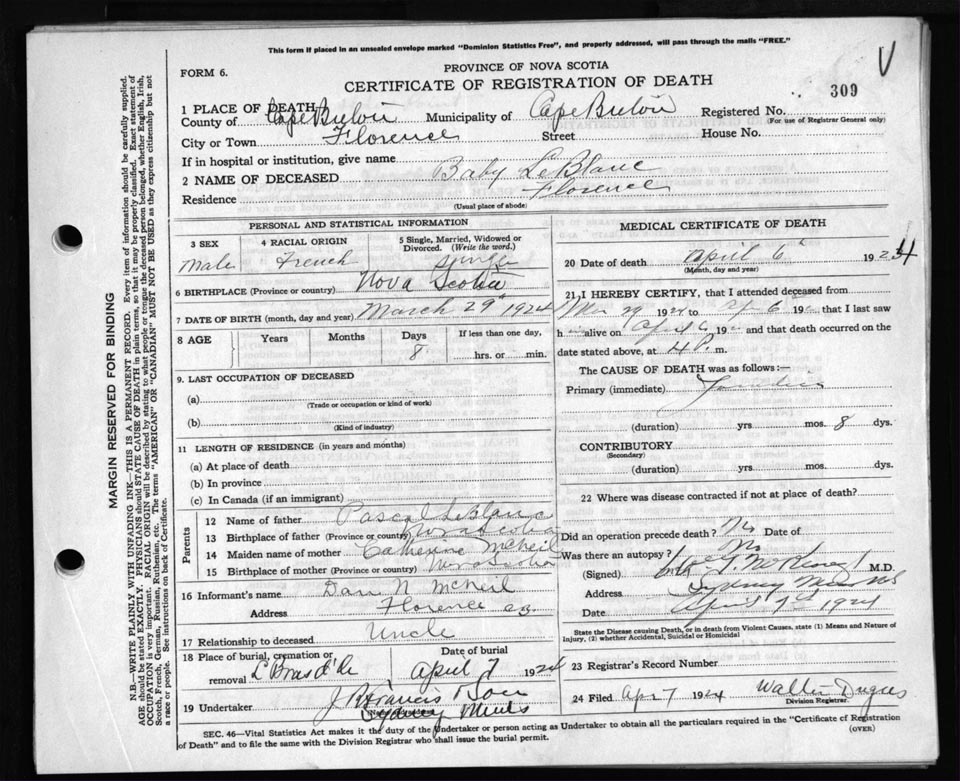 This form if placed in an unsealed envelope marked "Dominion Statistics Free", and properly addressed, will pass through the mails "FREE."
V
FORM 6.
PROVINCE OF NOVA SCOTIA
CERTIFICATE OF REGISTRATION OF DEATH
309
1 PLACE OF DEATH
County of Cape Breton Municipality of Cape Breton Registered No.
(For use of Registrar General only)
City or Town Florence Street House No.
If in hospital or institution, give name
2 NAME OF DECEASED Baby LeBlanc
Residence Florence
(Usual place of abode)
PERSONAL AND STATISTICAL INFORMATION
3 SEX 4 RACIAL ORIGIN 5 Single, Married, Widowed or Divorced. (Write the word.)
Male French Single
6 BIRTHPLACE (Province or country) Nova Scotia
7 DATE OF BIRTH (month, day and year) March 29 1924
8 AGE Years Months Days If less than one day,
8 hrs. or min.
9. LAST OCCUPATION OF DECEASED
(a)
(Trade or occupation or kind of work)
(b)
(Kind of industry)
11 LENGTH OF RESIDENCE (in years and months)
(a) At place of death
(b) In province
(c) In Canada (if an immigrant)
Parents
12 Name of father Pascal LeBlanc
13 Birthplace of father (Province or country) Nova Scotia
14 Maiden name of mother Catherine McNeil
15 Birthplace of mother (Province or country) Nova Scotia
16 Informant's name Dan N McNeil
Address Florence C.B.
17 Relationship to deceased Uncle
18 Place of burial, cremation or removal Date of burial
L Bras d'Or April 7 1924
19 Undertaker J Francis
Sydney Mines
MEDICAL CERTIFICATE OF DEATH
20 Date of death April 6 1924
(Month, day and year)
21 I HEREBY CERTIFY, that I attended deceased from
Mar 29 1924 to Ap 6 19 that I last saw
h alive on Ap 6 19 and that death occurred on the
date stated above, at 4 P. m.
The CAUSE OF DEATH was as follows:—
Primary (immediate)
(duration) yrs. mos. 8 dys.
CONTRIBUTORY
(Secondary)
(duration) yrs. mos. dys.
22 Where was disease contracted if not at place of death?
Did an operation precede death? No Date of
Was there an autopsy? No
(Signed) M.D.
Address Sydney Mines NS
Date April 7 1924
State the Disease causing Death, or in death from Violent Causes, state (1) Means and Nature of Injury, (2) whether Accidental, Suicidal or Homicidal
23 Registrar's Record Number
24 Filed Apr 7 1924 Walter Dugas
Division Registrar.
SEC. 46—Vital Statistics Act makes it the duty of the Undertaker or person acting as Undertaker to obtain all the particulars required in the "Certificate of Registration
of Death" and to file the same with the Division Registrar who shall issue the burial permit.
(OVER)
MARGIN RESERVED FOR BINDING
N.B.—WRITE PLAINLY WITH UNFADING INK—THIS IS A PERMANENT RECORD. Every item of information should be carefully supplied.
AGE should be stated EXACTLY. PHYSICIANS should STATE CAUSE OF DEATH in plain terms, so that it may be properly classified. Exact statement of
OCCUPATION is very important. RACIAL ORIGIN will be described by stating to what people or tongue the deceased person belonged, whether English, Irish,
Scotch, French, German, Russian, Ruthenian, etc. The terms "AMERICAN" OR "CANADIAN" MUST NOT BE USED as they express citizenship but not
a race or people. See instructions on back of Certificate.